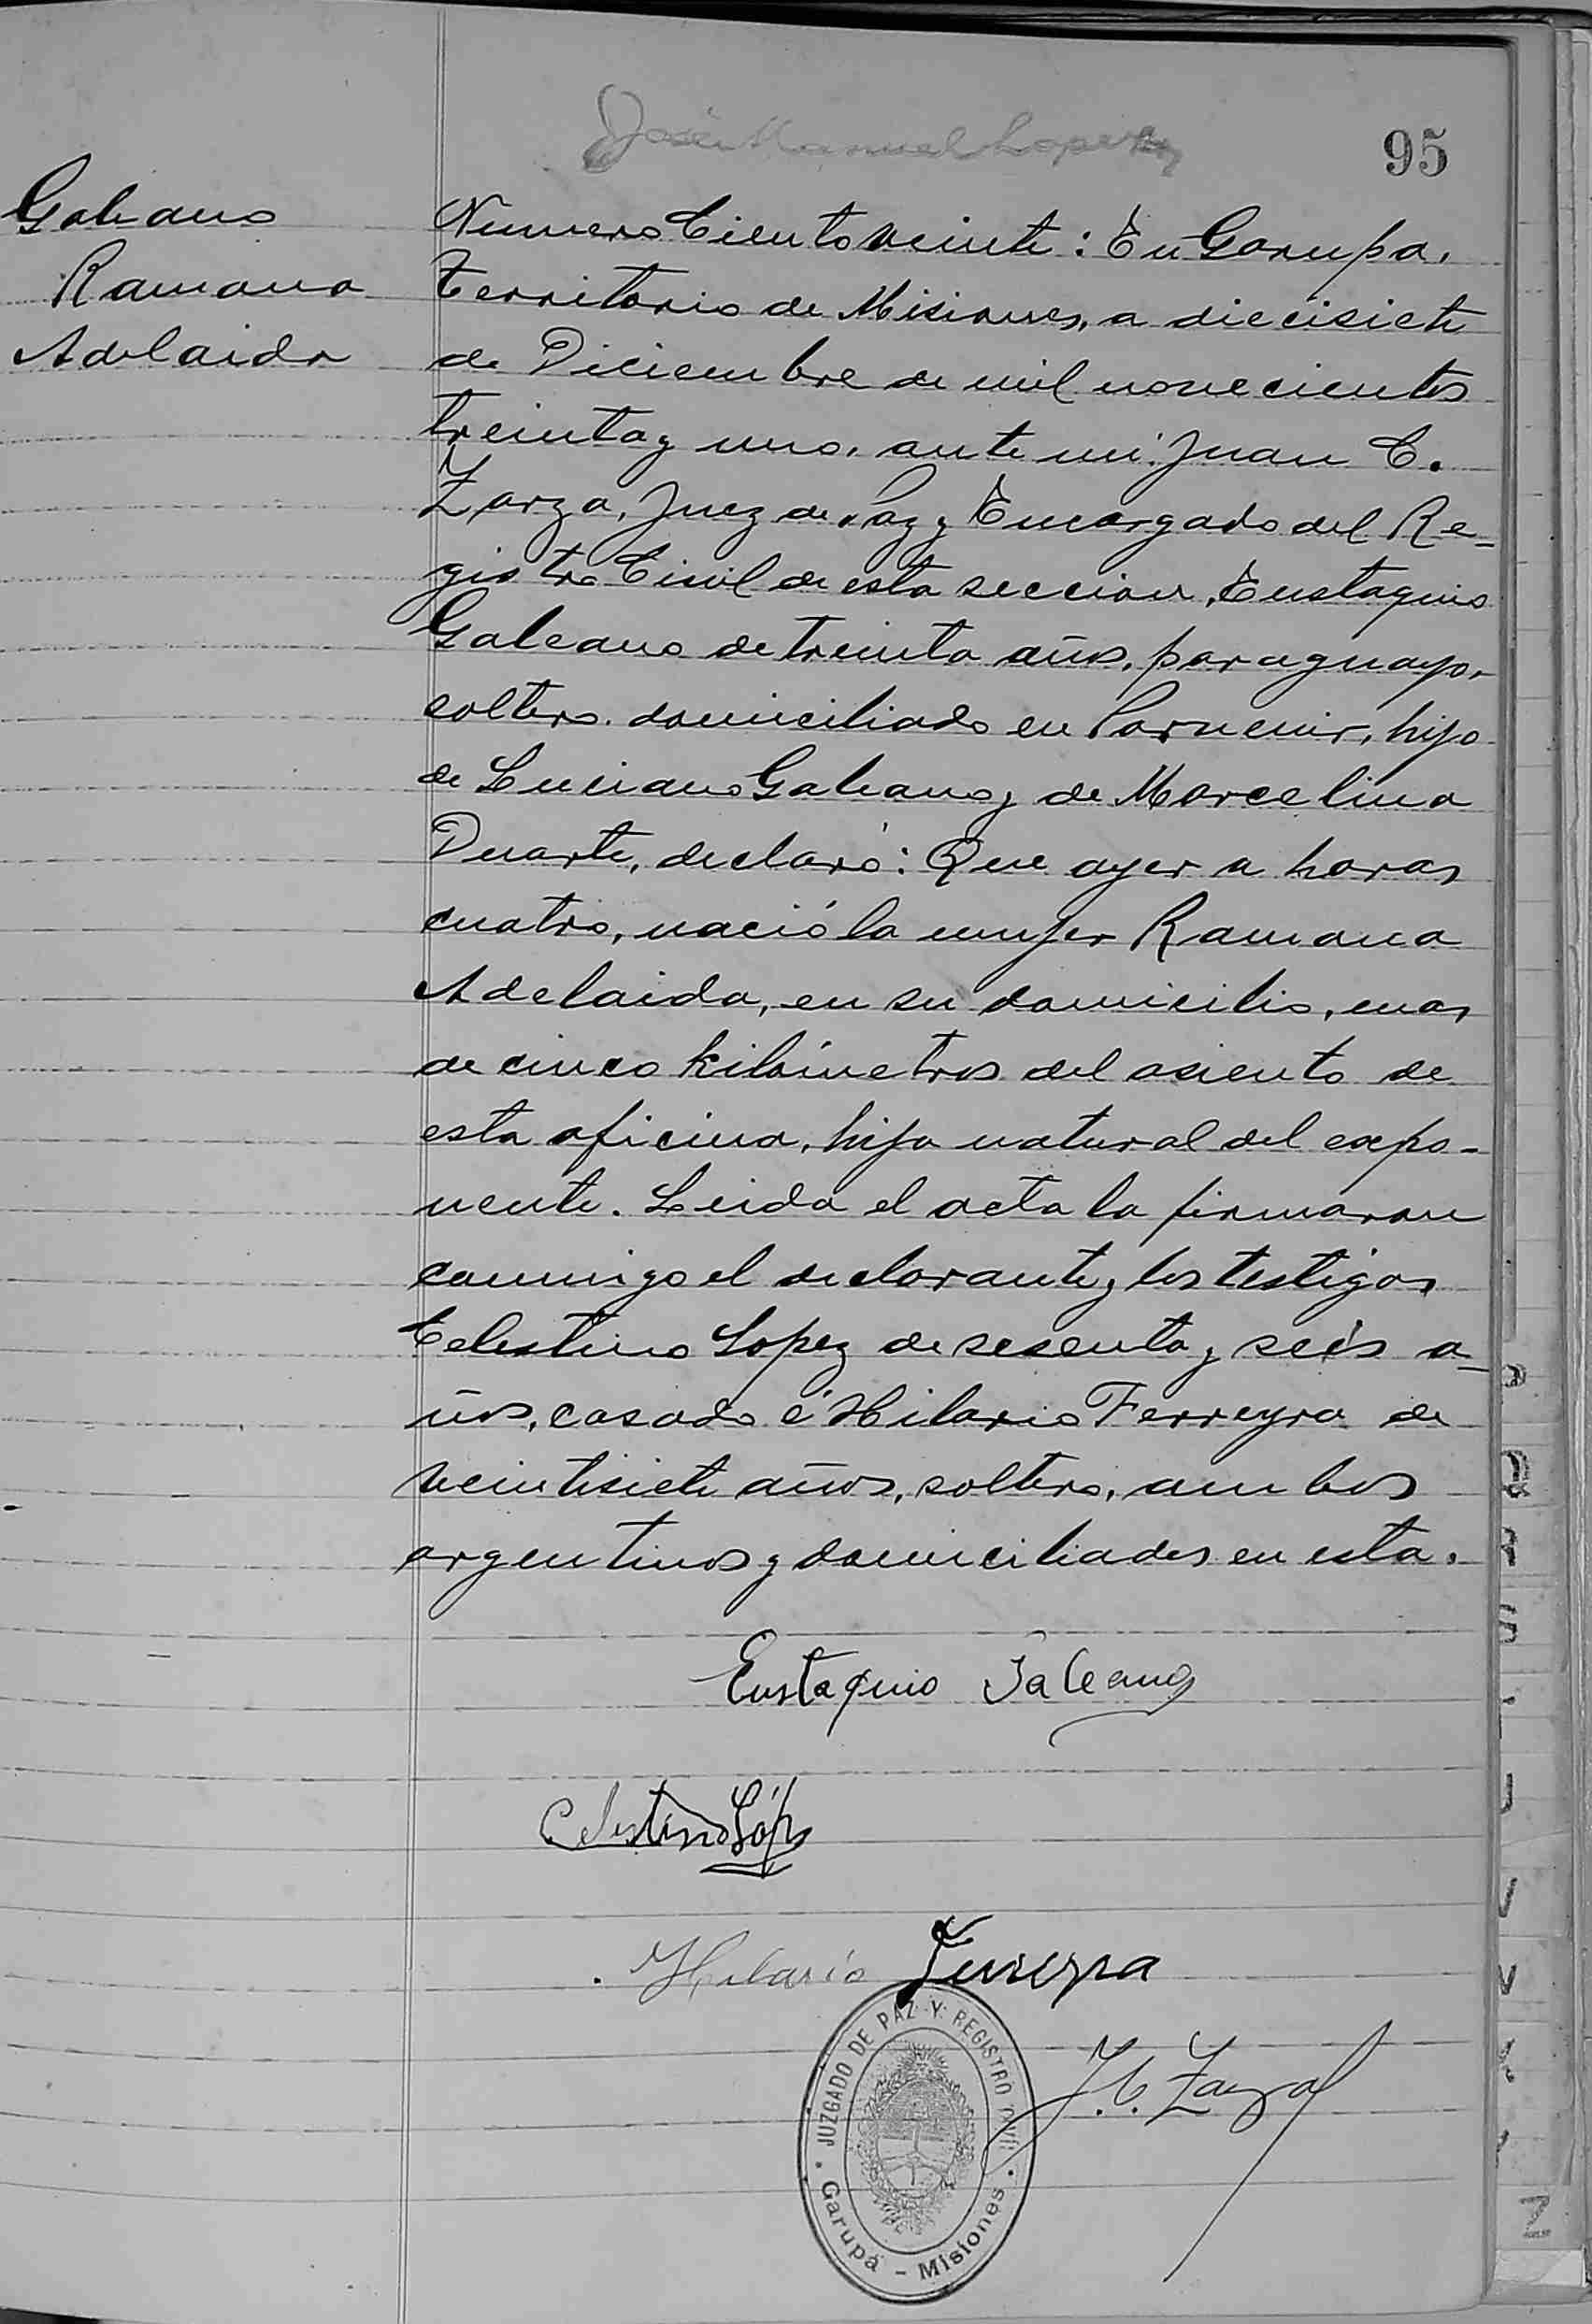 José Manuel Lopez
95
Galeano
Ramona
Adelaida
Numero Ciento veinte: En Garupa,
Territorio de Misiones, a diecisiete
de Diciembre de mil novecientos
treinta y uno, ante mi: Juan C.
Zarza, Juez de Paz y Encargado del Re-
gistro Civil de esta seccion, Eustaquio
Galeano de treinta años, paraguayo,
soltero, domiciliado en Porvenir, hijo
de Luciano Galeano y de Marcelina
Duarte, declaró: Que ayer a horas
cuatro, nació la mujer Ramona
Adelaida, en su domicilio, mas
de cinco kilómetros del asiento de
esta oficina, hija natural del expo-
nente. Leida el acta la firmaron
conmigo el declarante y los testigos
Celestino Lopez de sesenta y seis a-
ños, casado é Hilario Ferreyra de
veintisiete años, soltero, ambos
argentinos y domiciliados en esta.
Eustaquio Galeano
Celestino López
Hilario Ferreyra
J. C. Zarza
JUZGADO DE PAZ Y REGISTRO CIVIL
Garupá - Misiones